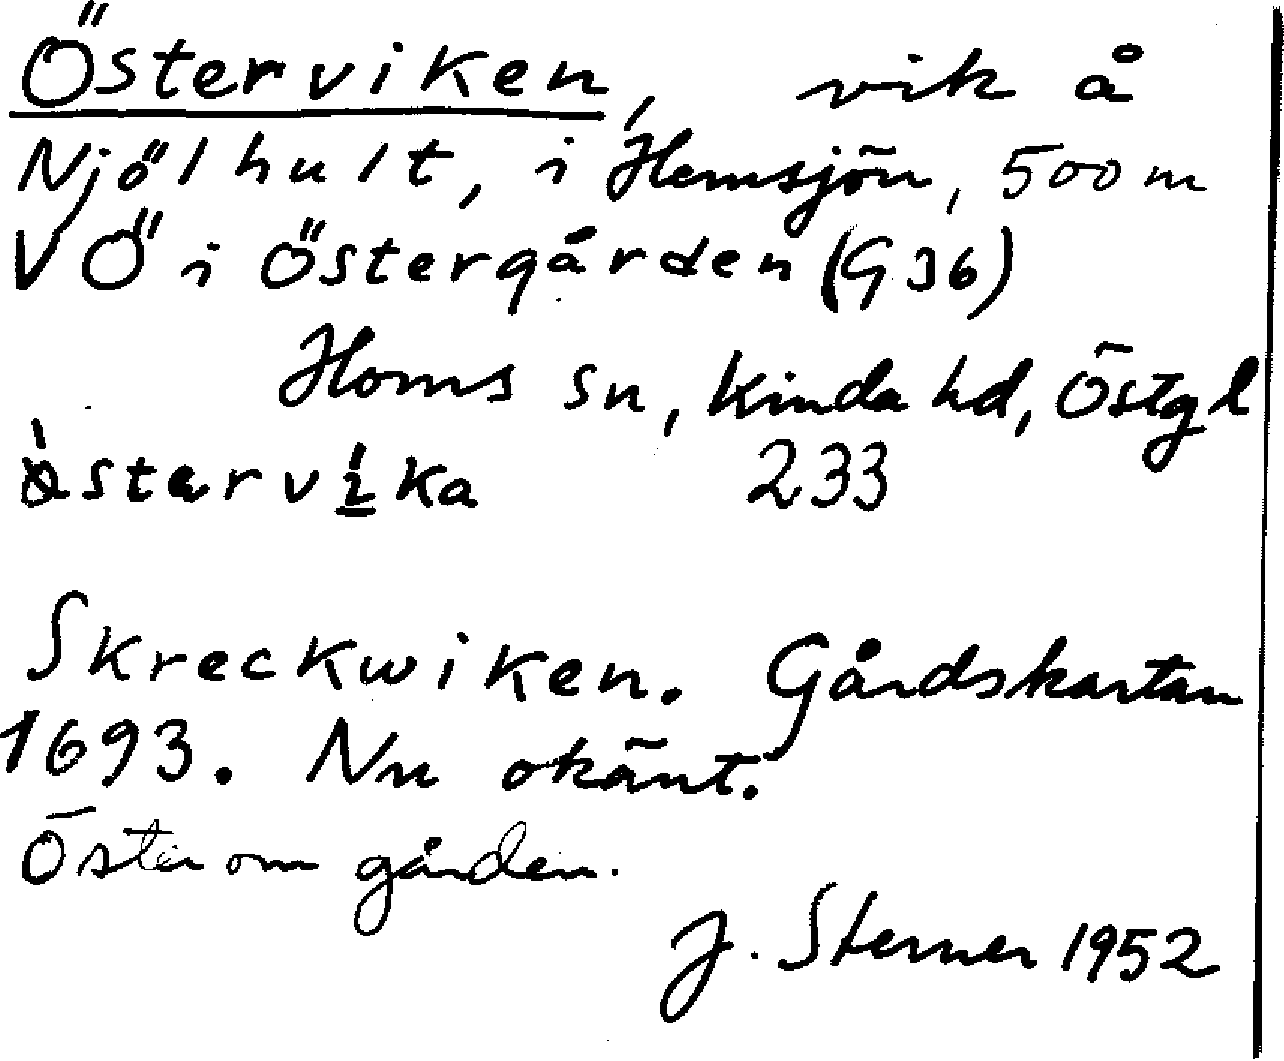 Österviken, vik å
Njölhult, i Hemsjön, 500 m
VÖ i Östergården (G 36)
Horns sn, Kinda hd, Östgl
233
Skreckwiken. Gårdskartan
1693. Nu okänt.
Öster om gården.
J. Sterner 1952